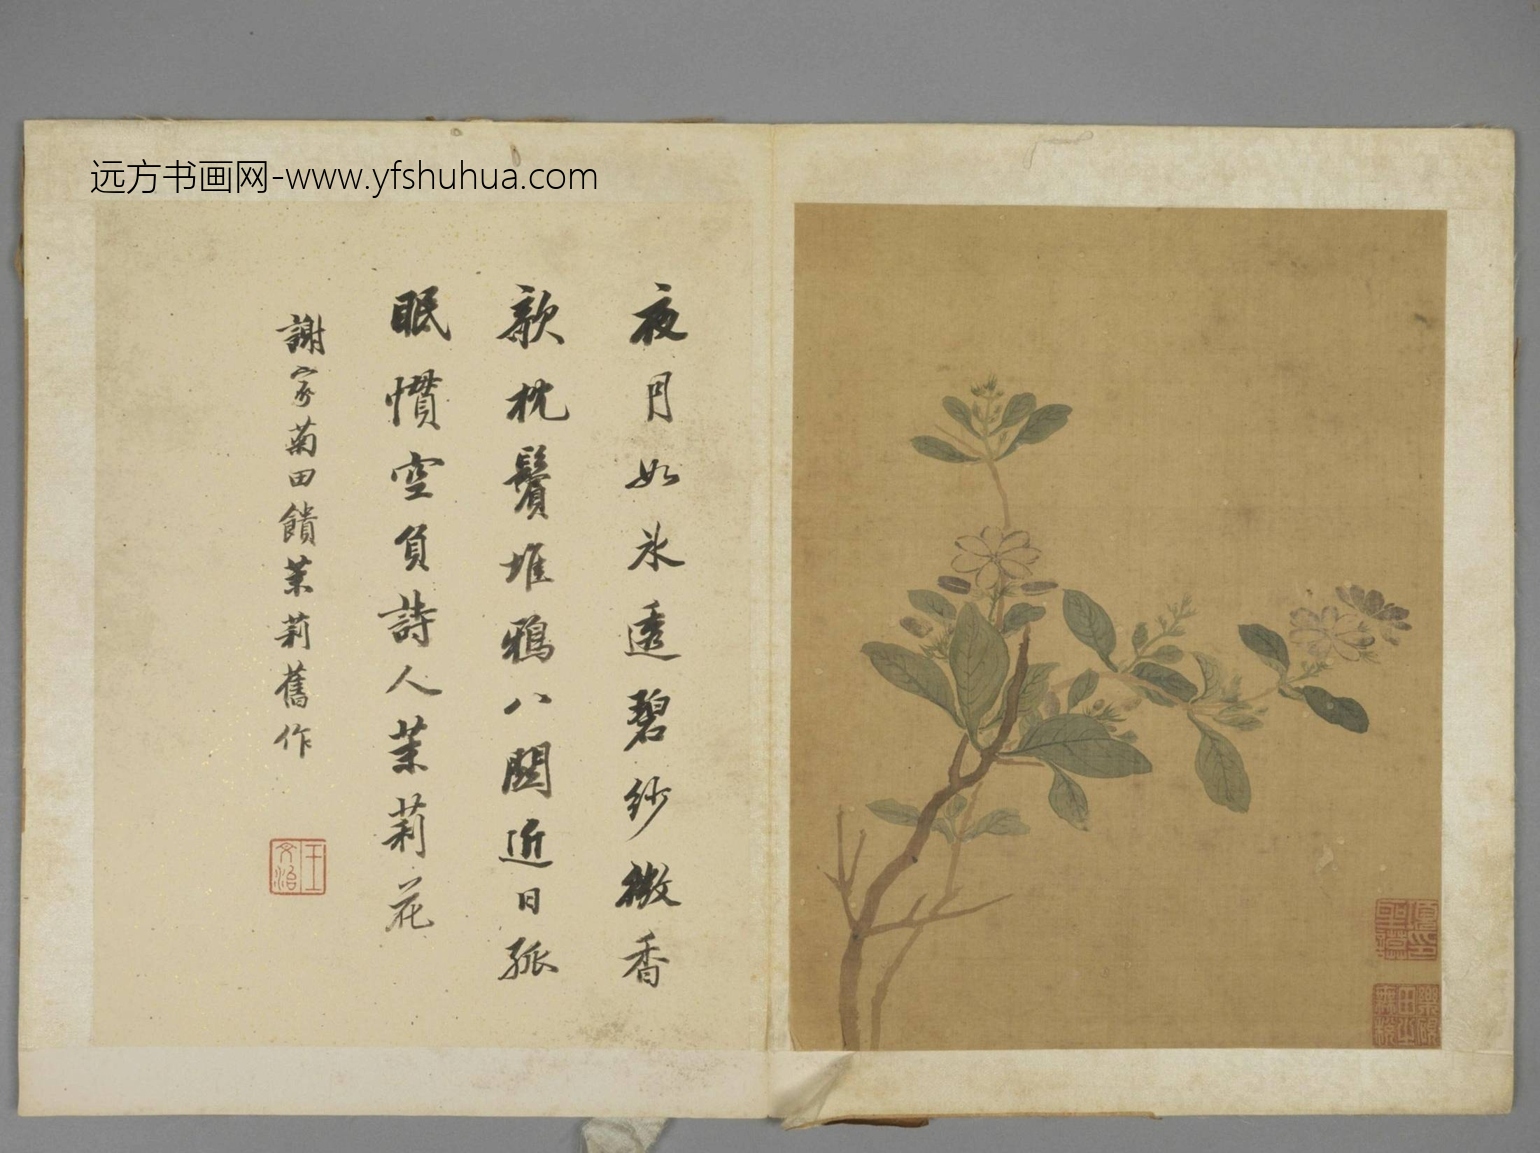 远方书画网-www.yfshuhua.com
夜月如氷透碧纱微香
欹枕鬢堆鴉八關近日孤
眠慣空負詩人茉莉花
謝家菊田饋茉莉舊作
王文治